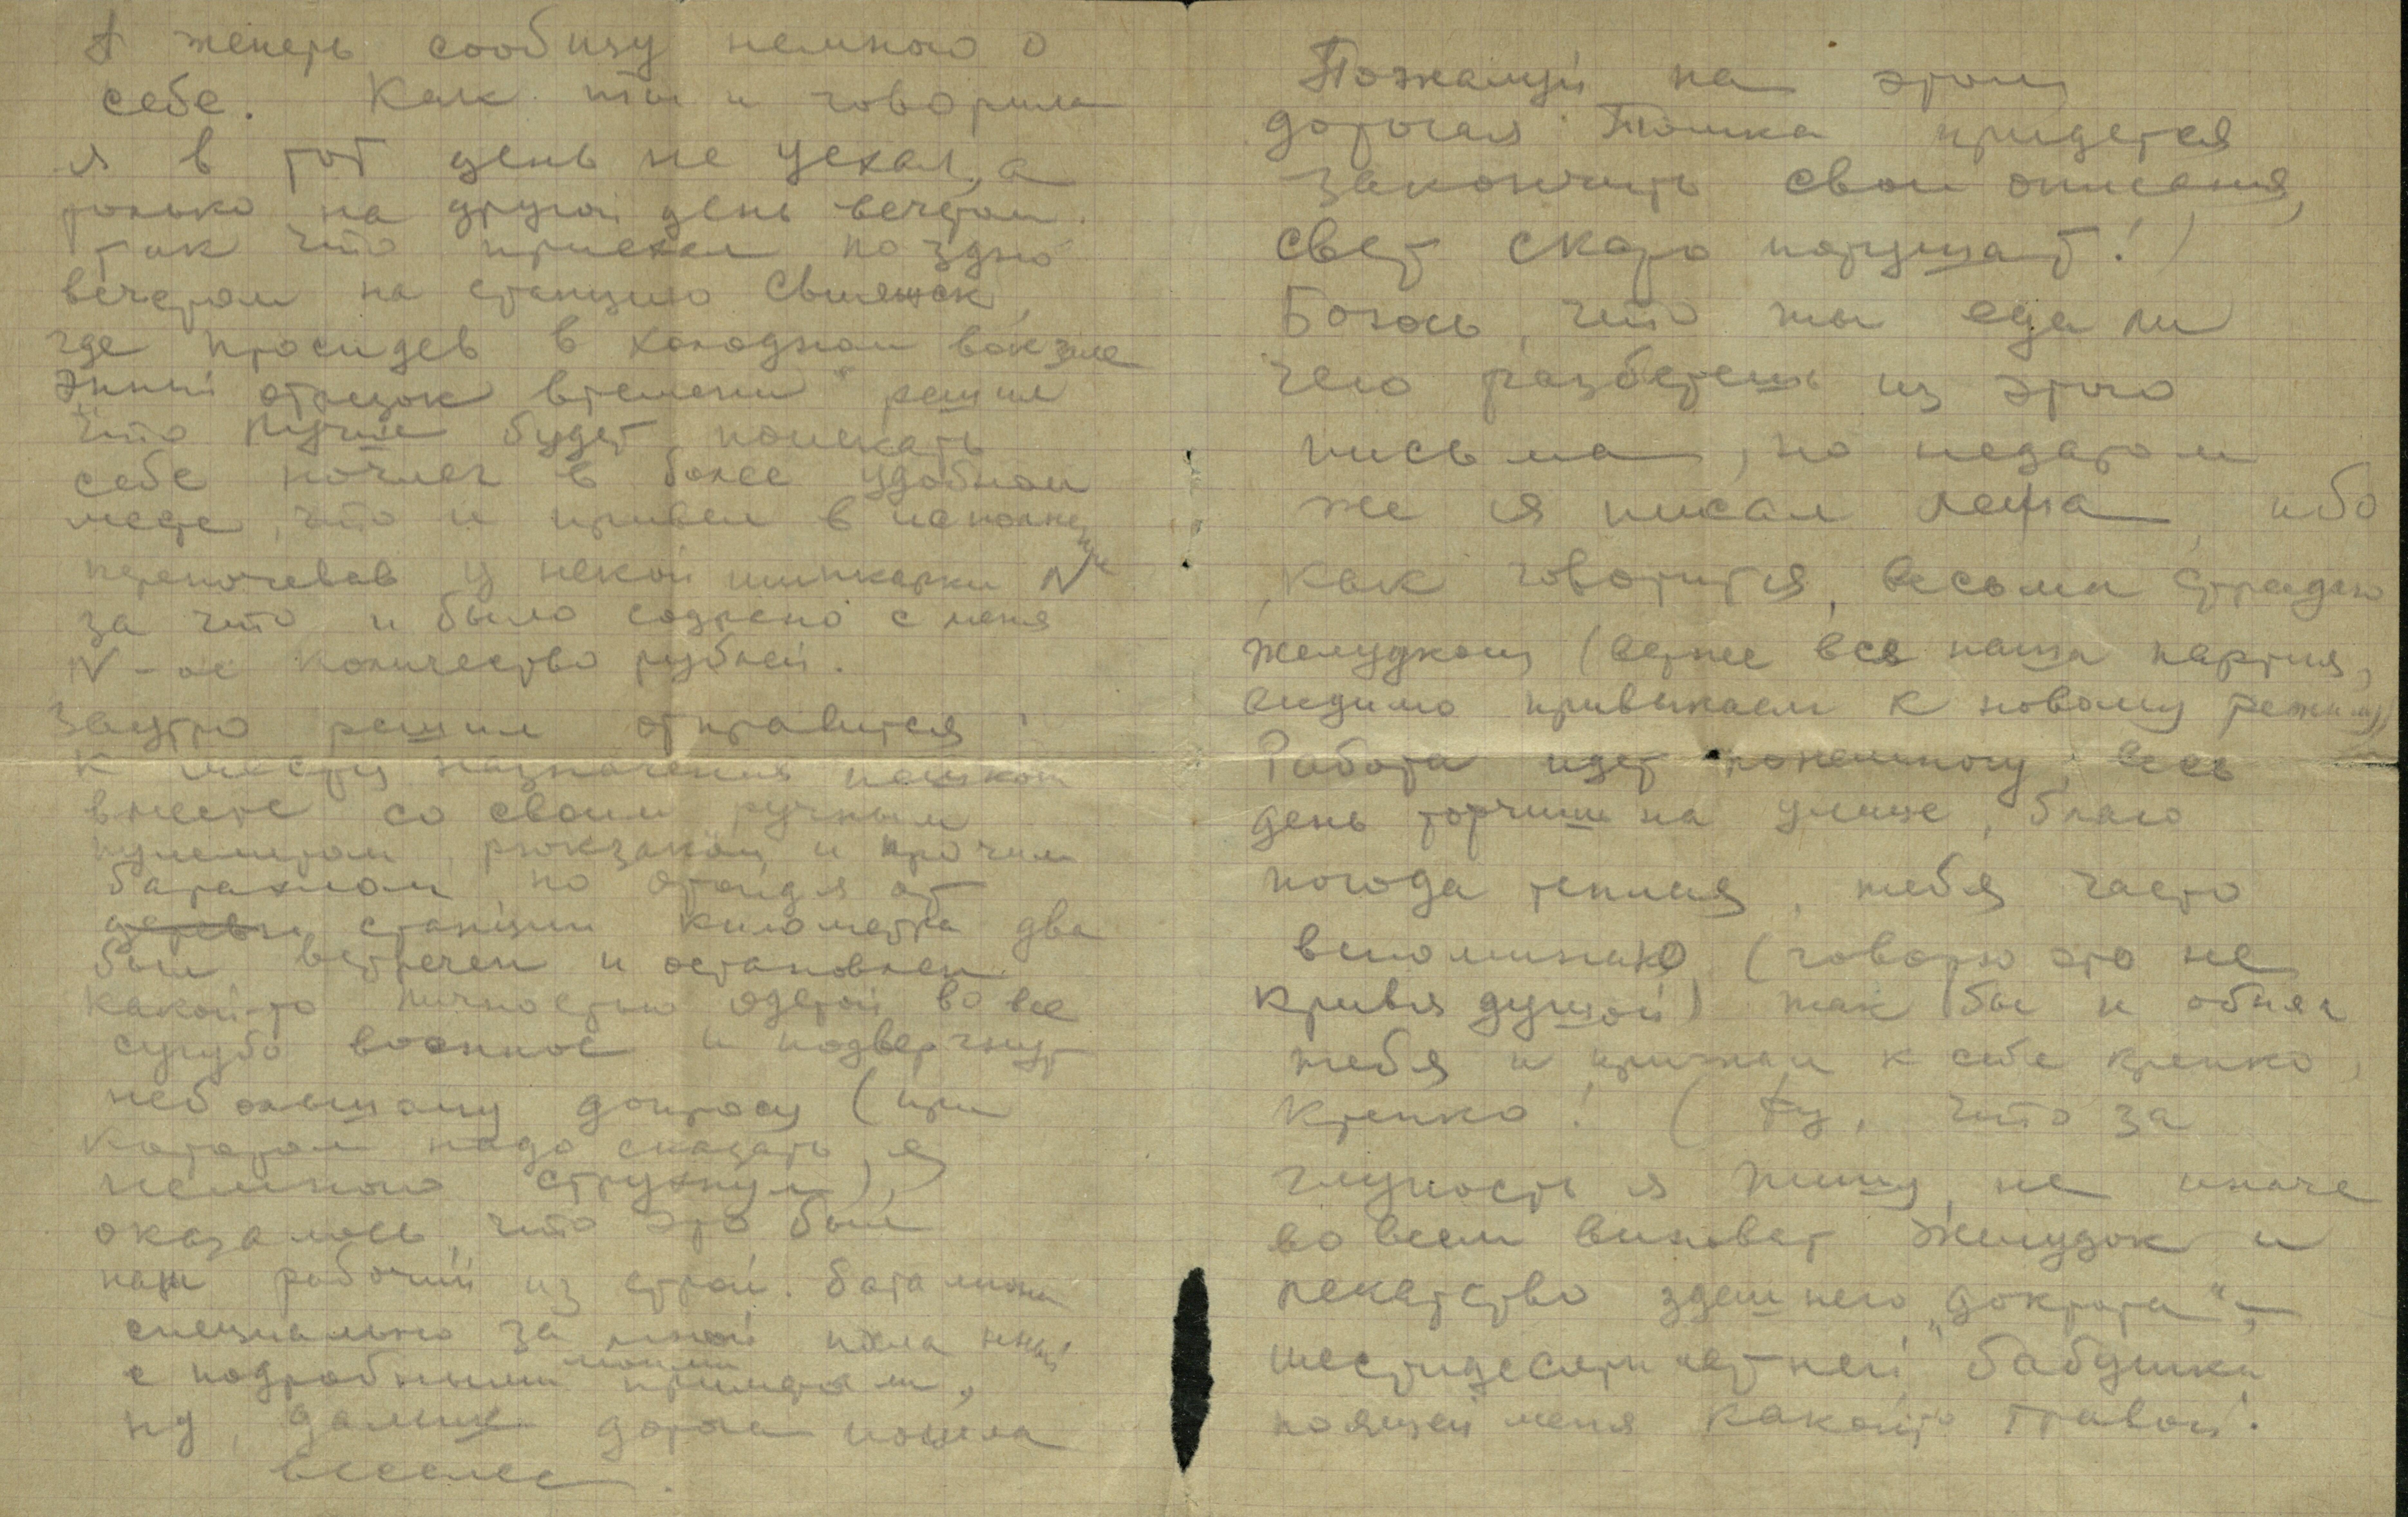 А теперь сообщу немного о
себе. Как ты и говорила
я в тот день не уехал, а
только на другой день вечером.
Так что приехал поздно
вечером на станцию Свияжск,
где просидев в холодном вокзале
энный отрезок времени" решил
что лучше будет поискать
себе ночлег в более удобном
месте, что и привел в исполнение
переночевав у некой шинкарки N
за что и было содрано с меня
N-ое количество рублей.
Завтро решил отправится
к месту назначения пешком
вместе со своим ручным
пулеметом, рюкзаком и прочим
барахлом но отойдя от
станции километра два
был встречен и остановлен
какой-то личностью одетой во все
сугубо военное и подвергнут
небольшому допросу (при
котором надо сказать, я
немного струхнул),
оказалось, что это был
наш рабочий из строй. батальона
специально за мной посланный
с подробными моими приметами,
ну, дальше дорога пошла
веселее.
Пожалуй на этом
дорогая Томка придется
закончить свои описания,
свет скоро потушат!)
Боюсь, что ты едва ли
чего разберешь из этого
письма, но недаром
же я писал лежа, ибо
как говорится, весьма страдаю
желудком (вернее вся наша партия,
видимо привыкаем к новому режиму)
Работа идет понемногу, весь
день торчишь на улице, благо
погода теплая, тебя часто
вспоминаю (говорю это не
кривя душой) так бы и обнял
тебя и прижал к себе крепко,
крепко! (Фу, что за
глупость я пишу, не иначе
во всем виноват желудок и
лекарство здешнего „доктора" –
шестидесятилетней бабушки
поящей меня какой-то травой.